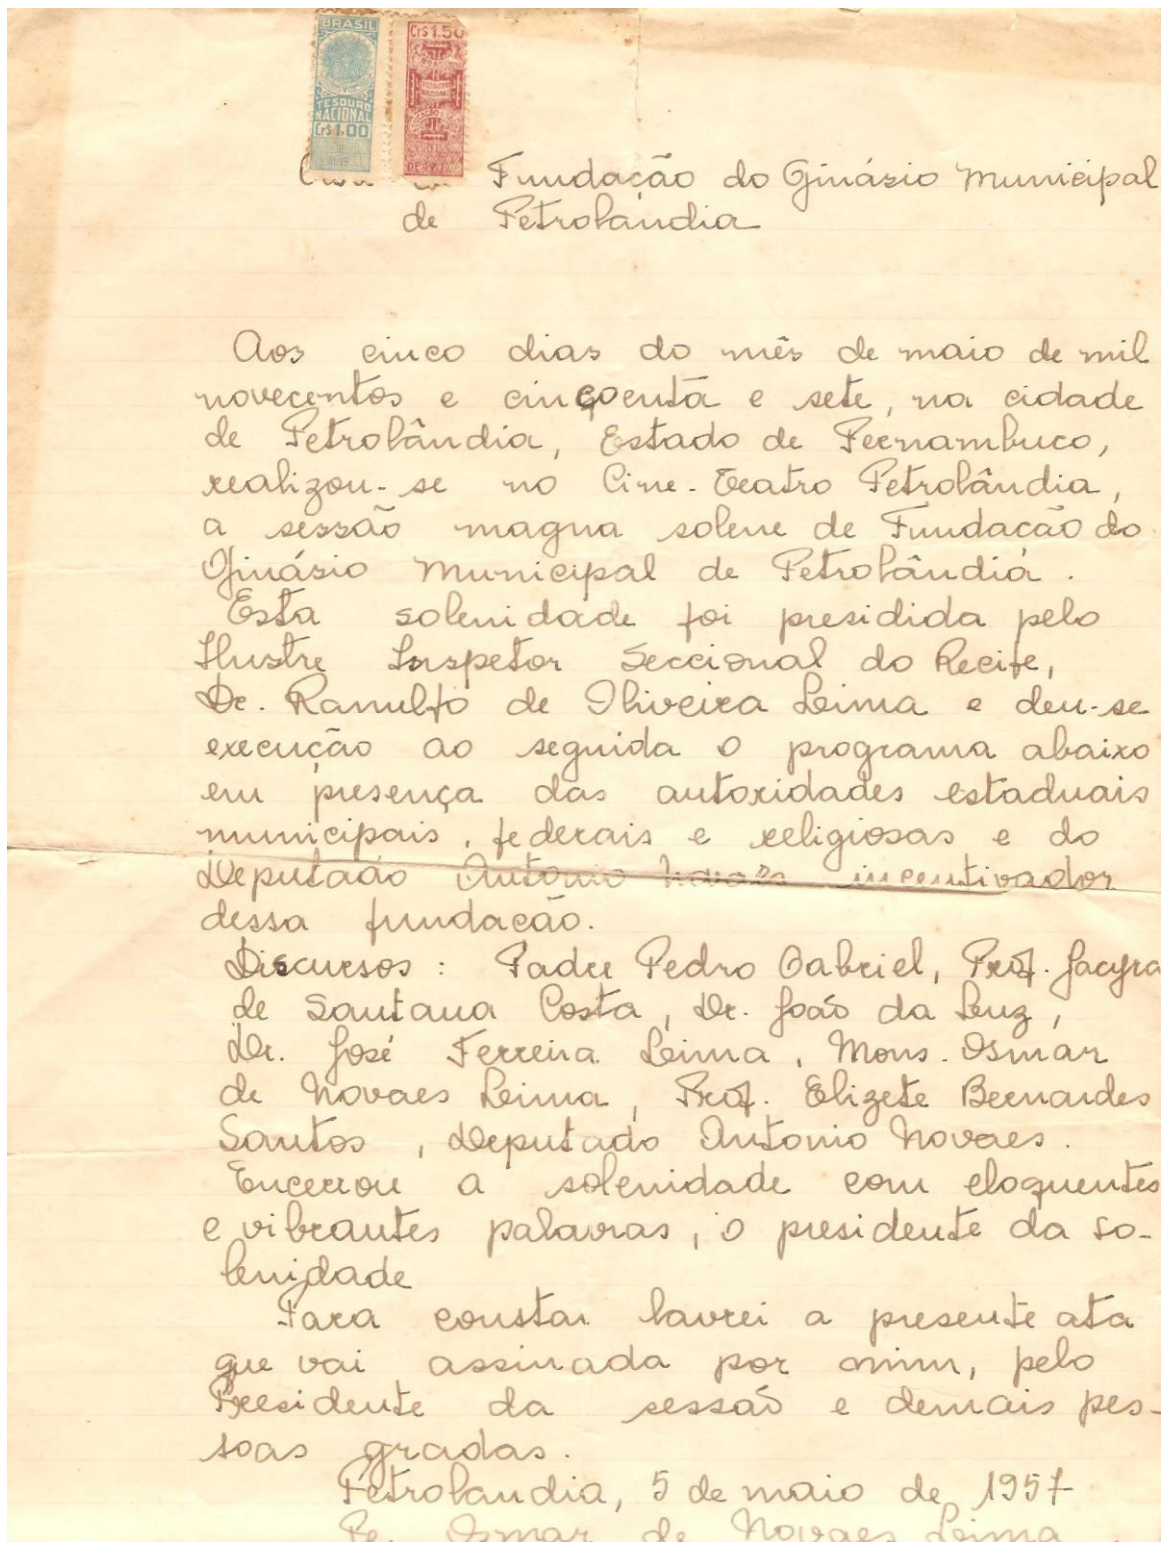 BRASIL
TESOURO
NACIONAL
Cr$1.00
Cr$1.50
Fundação do Ginásio Municipal
de Petrolândia
Aos cinco dias do mês de maio de mil
novecentos e cinçoenta e sete, na cidade
de Petrolândia, Estado de Pernambuco,
realizou-se no Cine-Teatro Petrolândia,
a sessão magna solene de Fundacão do
Ginásio Municipal de Petrolândia.
Esta solenidade foi presidida pelo
Ilustre Inspetor Seccional do Recife,
Dr. Ranulfo de Oliveira Lima e deu-se
execução ao seguida o programa abaixo
em presença das autoridades estaduais
municipais, federais e religiosas e do
Deputado Antonio Novaes incentivador
dessa fundacão.
Discursos: Padre Pedro Gabriel, Prof. Jacyra
de Santana Costa, Dr. João da Luz,
Dr. José Ferreira Lima, Mons. Osmar
de Novaes Lima, Prof. Elizete Bernardes
Santos, Deputado Antonio Novaes.
Encerrou a solenidade com eloquentes
e vibrantes palavras, o presidente da so-
lenidade
Para constar lavrei a presente ata
que vai assinada por mim, pelo
Presidente da sessão e demais pes-
soas gradas.
Petrolandia, 5 de maio de 1957
Pe. Osmar de Novaes Lima